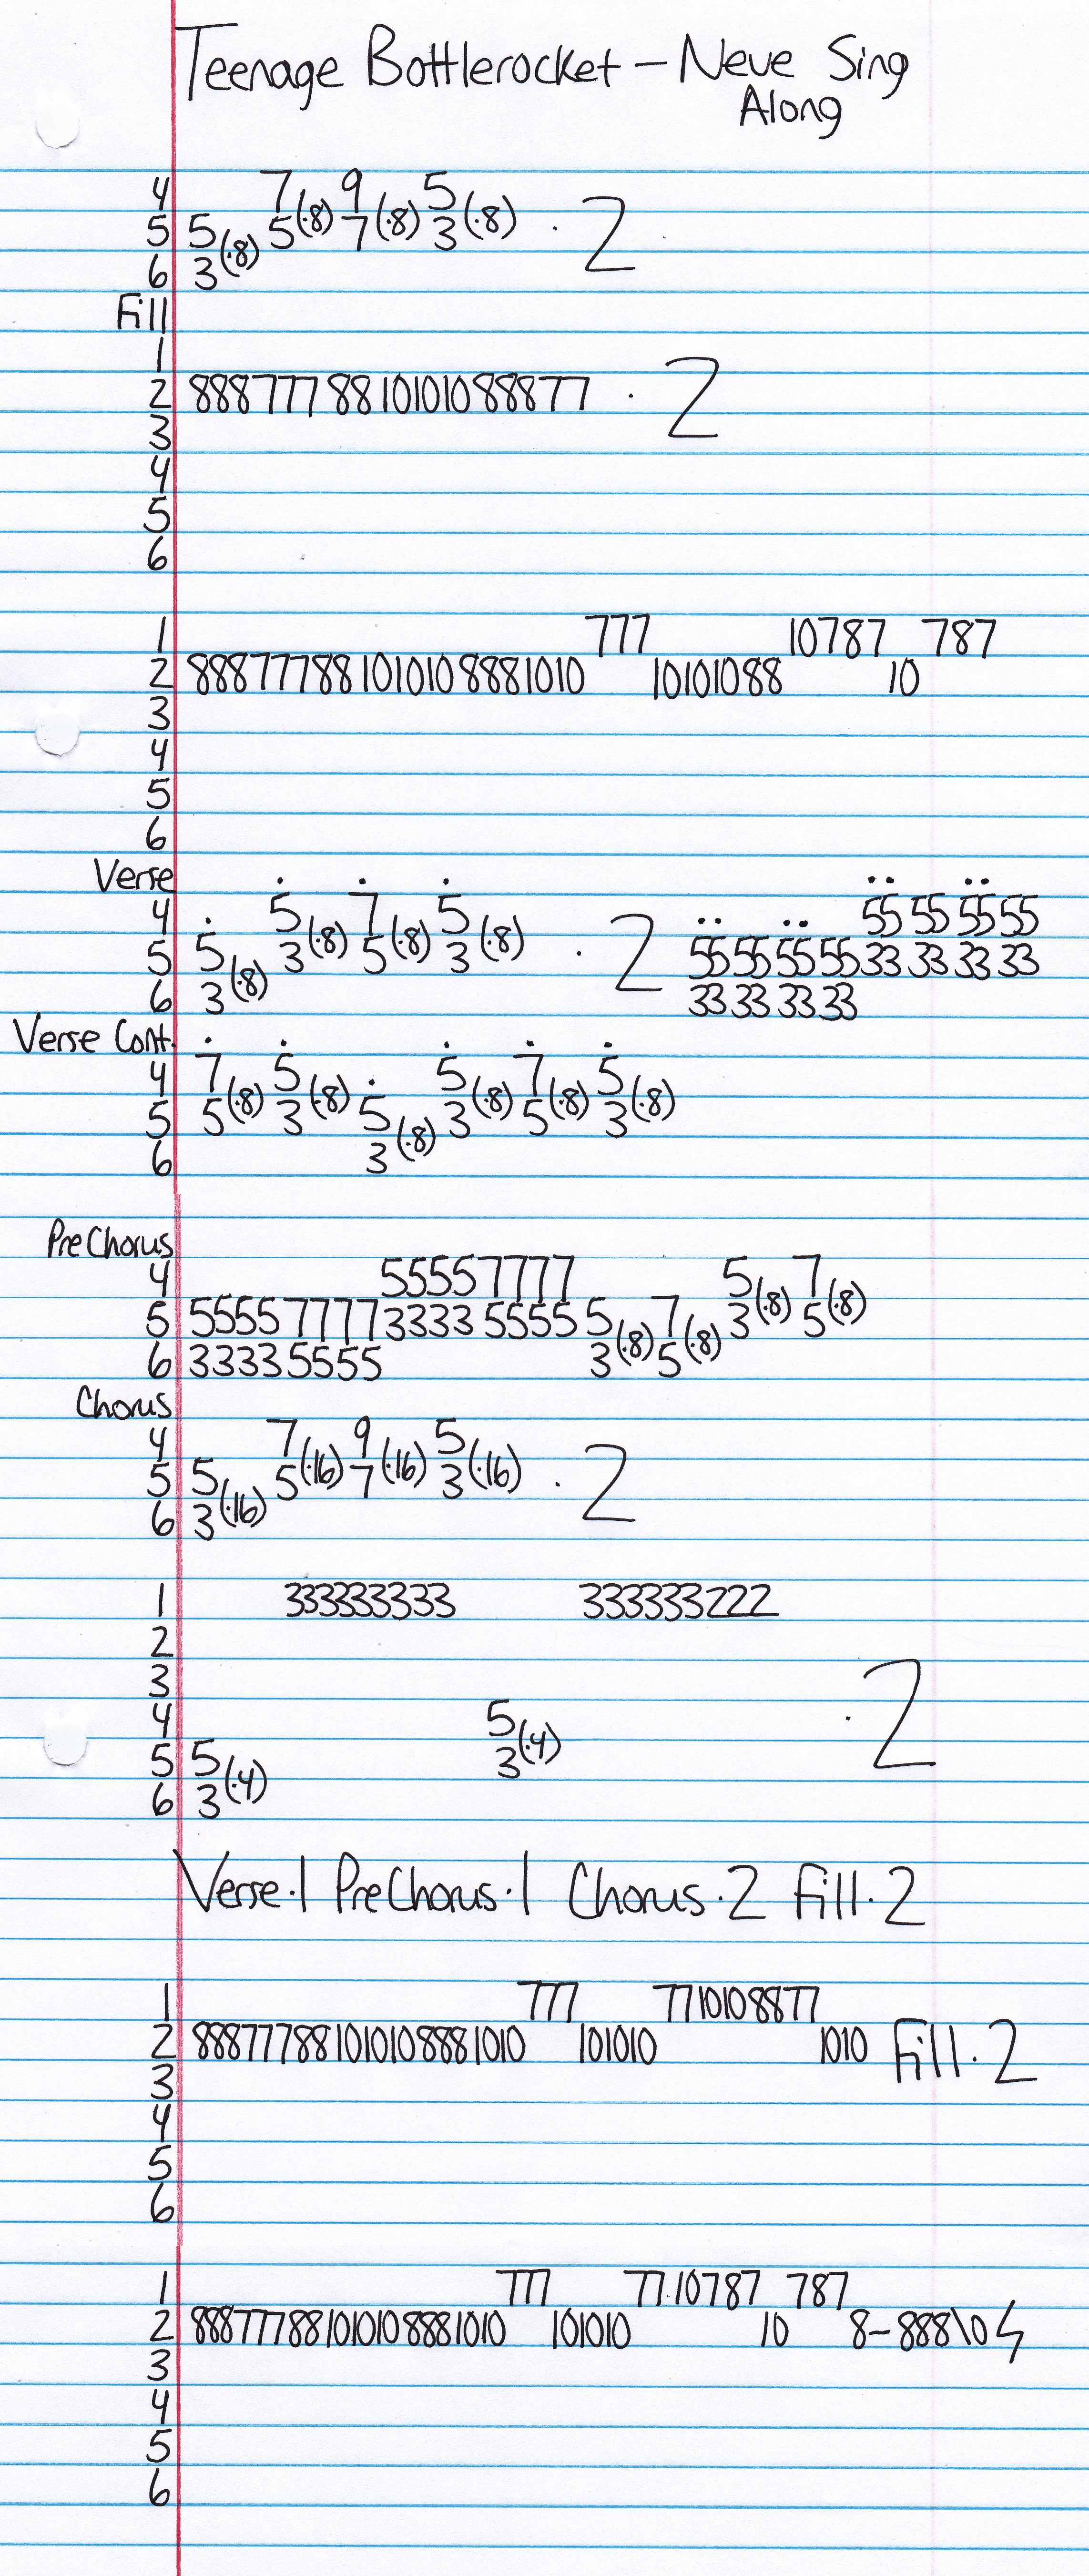 Teenage Bottlerocket – Neve Sing
Along
4 7(·8) 9(·8) 5(·8)
5 5(·8) 5 7 3 · 2
6 3
Fill
1
2 888777881010108887 7 · 2
3
4
5
6
1 777 10787 787
2 888777881010108881010 10101088 10
3
4
5
6
Verse
4 5 7 5 55 55 55 55
5 5 3(·8) 5(·8) 3(·8) · 2 55 55 55 55 33 33 33 33
6 3(·8) 33 33 33 33
Verse Cont.
4 7(·8) 5(·8) 5(·8) 7(·8) 5(·8)
5 5 3 5 3 5 3
6 3(·8)
PreChorus
4 5555 7777 5(·8) 7(·8)
5 5555 7777 3333 5555 5 7 3 5
6 3333 5555 3(·8) 5(·8)
Chorus
4 7(·16) 9(·16) 5(·16)
5 5 5 7 3 · 2
6 3(·16)
1 333333333 333333222
2
3
4 5 · 2
5 5 3(·4)
6 3(·4)
Verse·1 PreChorus·1 Chorus·2 Fill·2
1 777 7710108877
2 888777881010108881010 101010 1010 Fill·2
3
4
5
6
1 777 7710787 787
2 888777881010108881010 101010 10 8–888\10
3
4
5
6